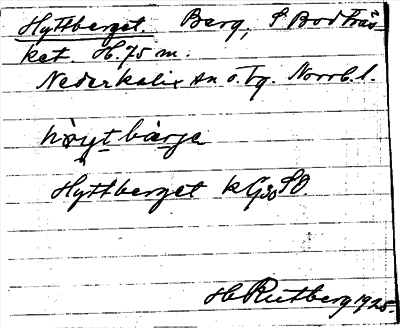 Hyttberget. Berg, S Bodträs-
ket. H. 75 m.
Nederkalix sn o. tg. Norrb. l.
höytbärje
Hyttberget kG30SO
H Rutberg 1925.